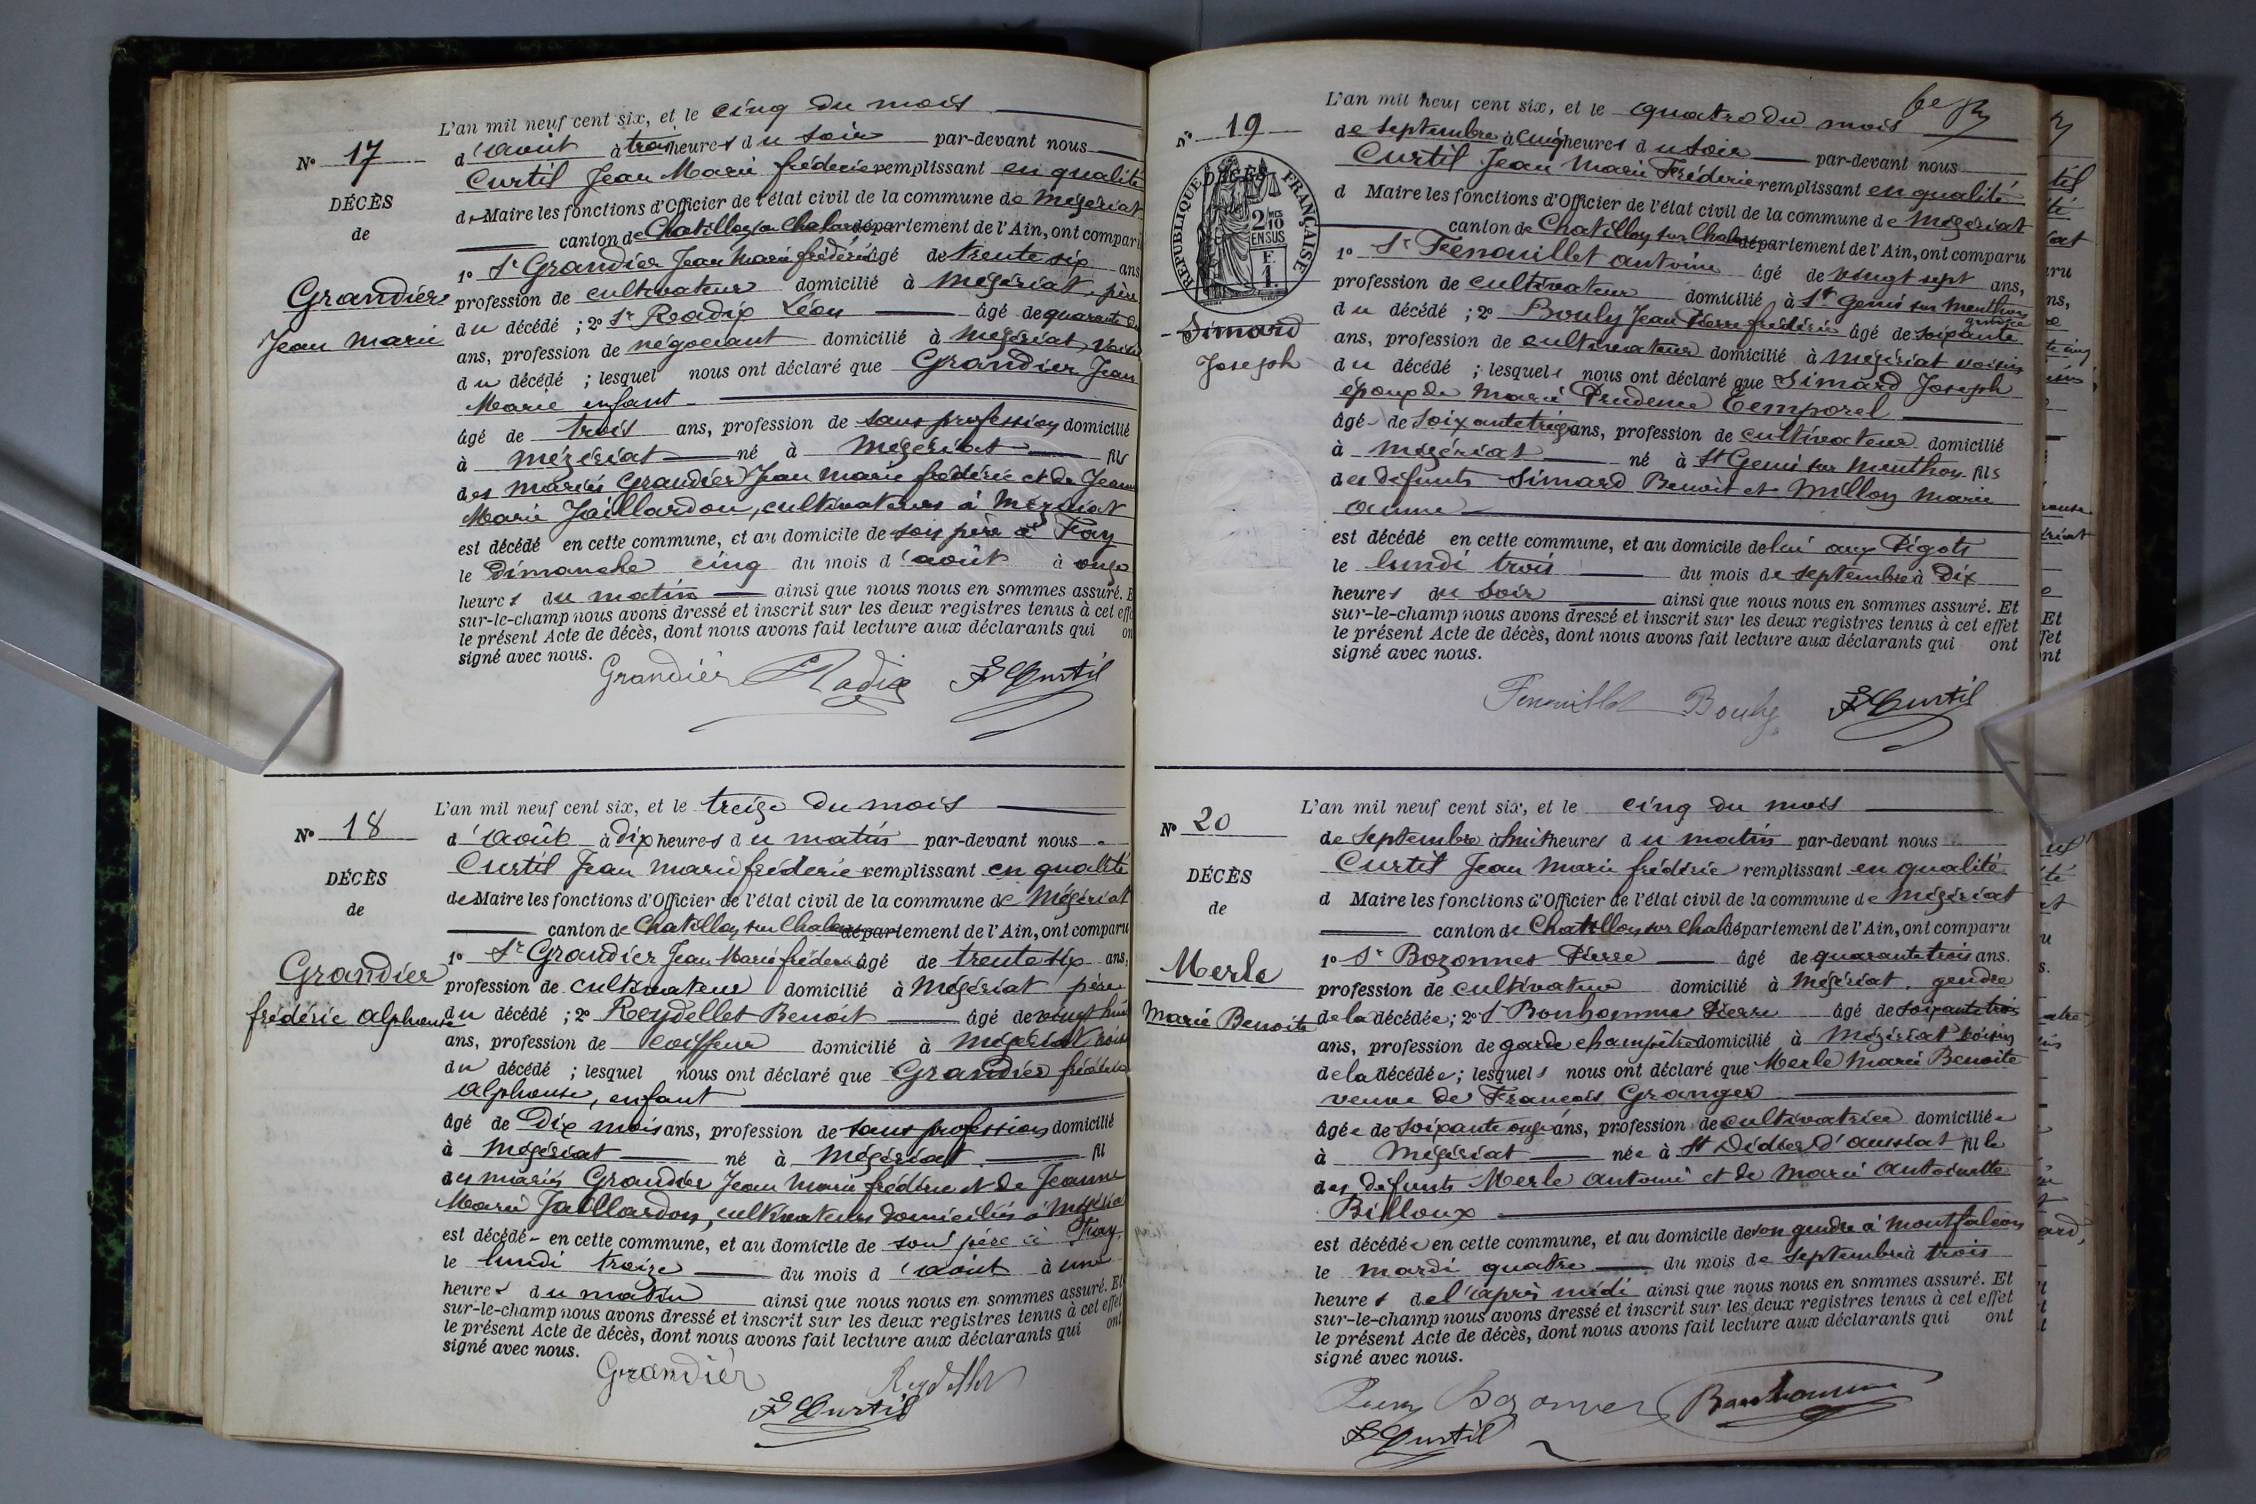 L'an mil neuf cent six, et le cinq du mois
N° 17
d'août à trois heures du soir par-devant nous
Curtil Jean Marie fréderic remplissant en qualité
DÉCÈS
de Maire les fonctions d'Officier de l'état civil de la commune de Mézériat
de
canton de Chatillon sur Chalar département de l'Ain, ont comparu
1° Sr Grandier Jean Marie frédéric âgé de trente six ans
Grandier
profession de cultivateur domicilié à Mézériat, père
Jean Marie
du décédé ; 2° Sr Readix Léon âgé de quarante
ans, profession de négociant domicilié à Mézériat, voisin
du décédé ; lesquel nous ont déclaré que Grandier Jean
Marie enfant
âgé de trois ans, profession de sans profession domicilié
à Mézériat né à Mézériat fils
des mariés Grandier Jean Marie frédéric et de Jeanne
Marie Jaillardon, cultivateurs à Mézériat
est décédé en cette commune, et au domicile de son père à Fay
le Dimanche cinq du mois d'août à onze
heures du matin ainsi que nous nous en sommes assuré. E
sur-le-champ nous avons dressé et inscrit sur les deux registres tenus à cet effe
le présent Acte de décès, dont nous avons fait lecture aux déclarants qui on
signé avec nous.
Grandier Radix F Curtil
L'an mil neuf cent six, et le treize du mois
N° 18
d'août à dix heures du matin par-devant nous
Curtil Jean Marie fréderic remplissant en qualité
DÉCÈS
de Maire les fonctions d'Officier de l'état civil de la commune de Mézériat
de
canton de Chatillon sur Chalar département de l'Ain, ont comparu
1° Sr Grandier Jean Marie fréderic âgé de trente six ans,
Grandier
profession de cultivateur domicilié à Mézériat père
frédéric alphonse
du décédé ; 2° Reydellet Benoit âgé de vingt huit
ans, profession de coiffeur domicilié à Mézériat voisin
du décédé ; lesquel nous ont déclaré que Grandier frédéric
alphonse, enfant
âgé de Dix mois ans, profession de sans profession domicilié
à Mézériat né à Mézériat fil
des mariés Grandier Jean Marie frédéric et de Jeanne
Marie Jaillardon, cultivateurs domiciliés à Mézériat
est décédé en cette commune, et au domicile de son père à Fay
le lundi treize du mois d'août à une
heures du matin ainsi que nous nous en sommes assuré. Et
sur-le-champ nous avons dressé et inscrit sur les deux registres tenus à cet effet
le présent Acte de décès, dont nous avons fait lecture aux déclarants qui ont
signé avec nous.
Grandier Reydellet
F Curtil
L'an mil neuf cent six, et le quatre du mois
N° 19
de septembre à cinq heures du soir par-devant nous
Curtil Jean Marie Fréderic remplissant en qualité
DÉCÈS
RÉPUBLIQUE FRANÇAISE
2 MES 10 EN SUS
F. 1
d Maire les fonctions d'Officier de l'état civil de la commune de Mézériat
canton de Chatillon sur Chalar département de l'Ain, ont comparu
1° Sr Fenouillet antoine âgé de vingt sept ans,
profession de cultivateur domicilié à St Genis sur Menthon
gendre
Simard
du décédé ; 2° Bouly Jean Pierre frédéric âgé de soixante
Joseph
ans, profession de cultivateur domicilié à Mézériat voisin
du décédé ; lesquels nous ont déclaré que Simard Joseph
époux de Marie Prudence Temporel
âgé de soixante treize ans, profession de cultivateur domicilié
à Mézériat né à St Genis sur Menthon fils
des défunts Simard Benoit et Millon Marie
anne
est décédé en cette commune, et au domicile de lui aux Pigots
le lundi trois du mois de septembre à Dix
heures du soir ainsi que nous nous en sommes assuré. Et
sur-le-champ nous avons dressé et inscrit sur les deux registres tenus à cet effet
le présent Acte de décès, dont nous avons fait lecture aux déclarants qui ont
signé avec nous.
Fenouillet Bouly F Curtil
L'an mil neuf cent six, et le cinq du mois
N° 20
de septembre à huit heures du matin par-devant nous
Curtil Jean Marie frédéric remplissant en qualité
DÉCÈS
d Maire les fonctions d'Officier de l'état civil de la commune de Mézériat
de
canton de Chatillon sur Chal département de l'Ain, ont comparu
1° Sr Bozonnet Pierre âgé de quarante trois ans.
Merle
profession de cultivateur domicilié à Mézériat, gendre
Marie Benoite
de la décédée ; 2° S Bonhomme Pierre âgé de soixante trois
ans, profession de garde champêtre domicilié à Mézériat voisin
de la décédée ; lesquels nous ont déclaré que Merle Marie Benoite
veuve de Francois Granger
âgée de soixante onze ans, profession de cultivatrice domiciliée
à Mézériat née à St Didier d'aussiat fille
des defunts Merle antoine et de Marie antoinette
Billoux
est décédée en cette commune, et au domicile de son gendre à Montfalcon
le mardi quatre du mois de septembre à trois
heures de l'après midi ainsi que nous nous en sommes assuré. Et
sur-le-champ nous avons dressé et inscrit sur les deux registres tenus à cet effet
le présent Acte de décès, dont nous avons fait lecture aux déclarants qui ont
signé avec nous.
Bozonnet Bonhomme
F Curtil